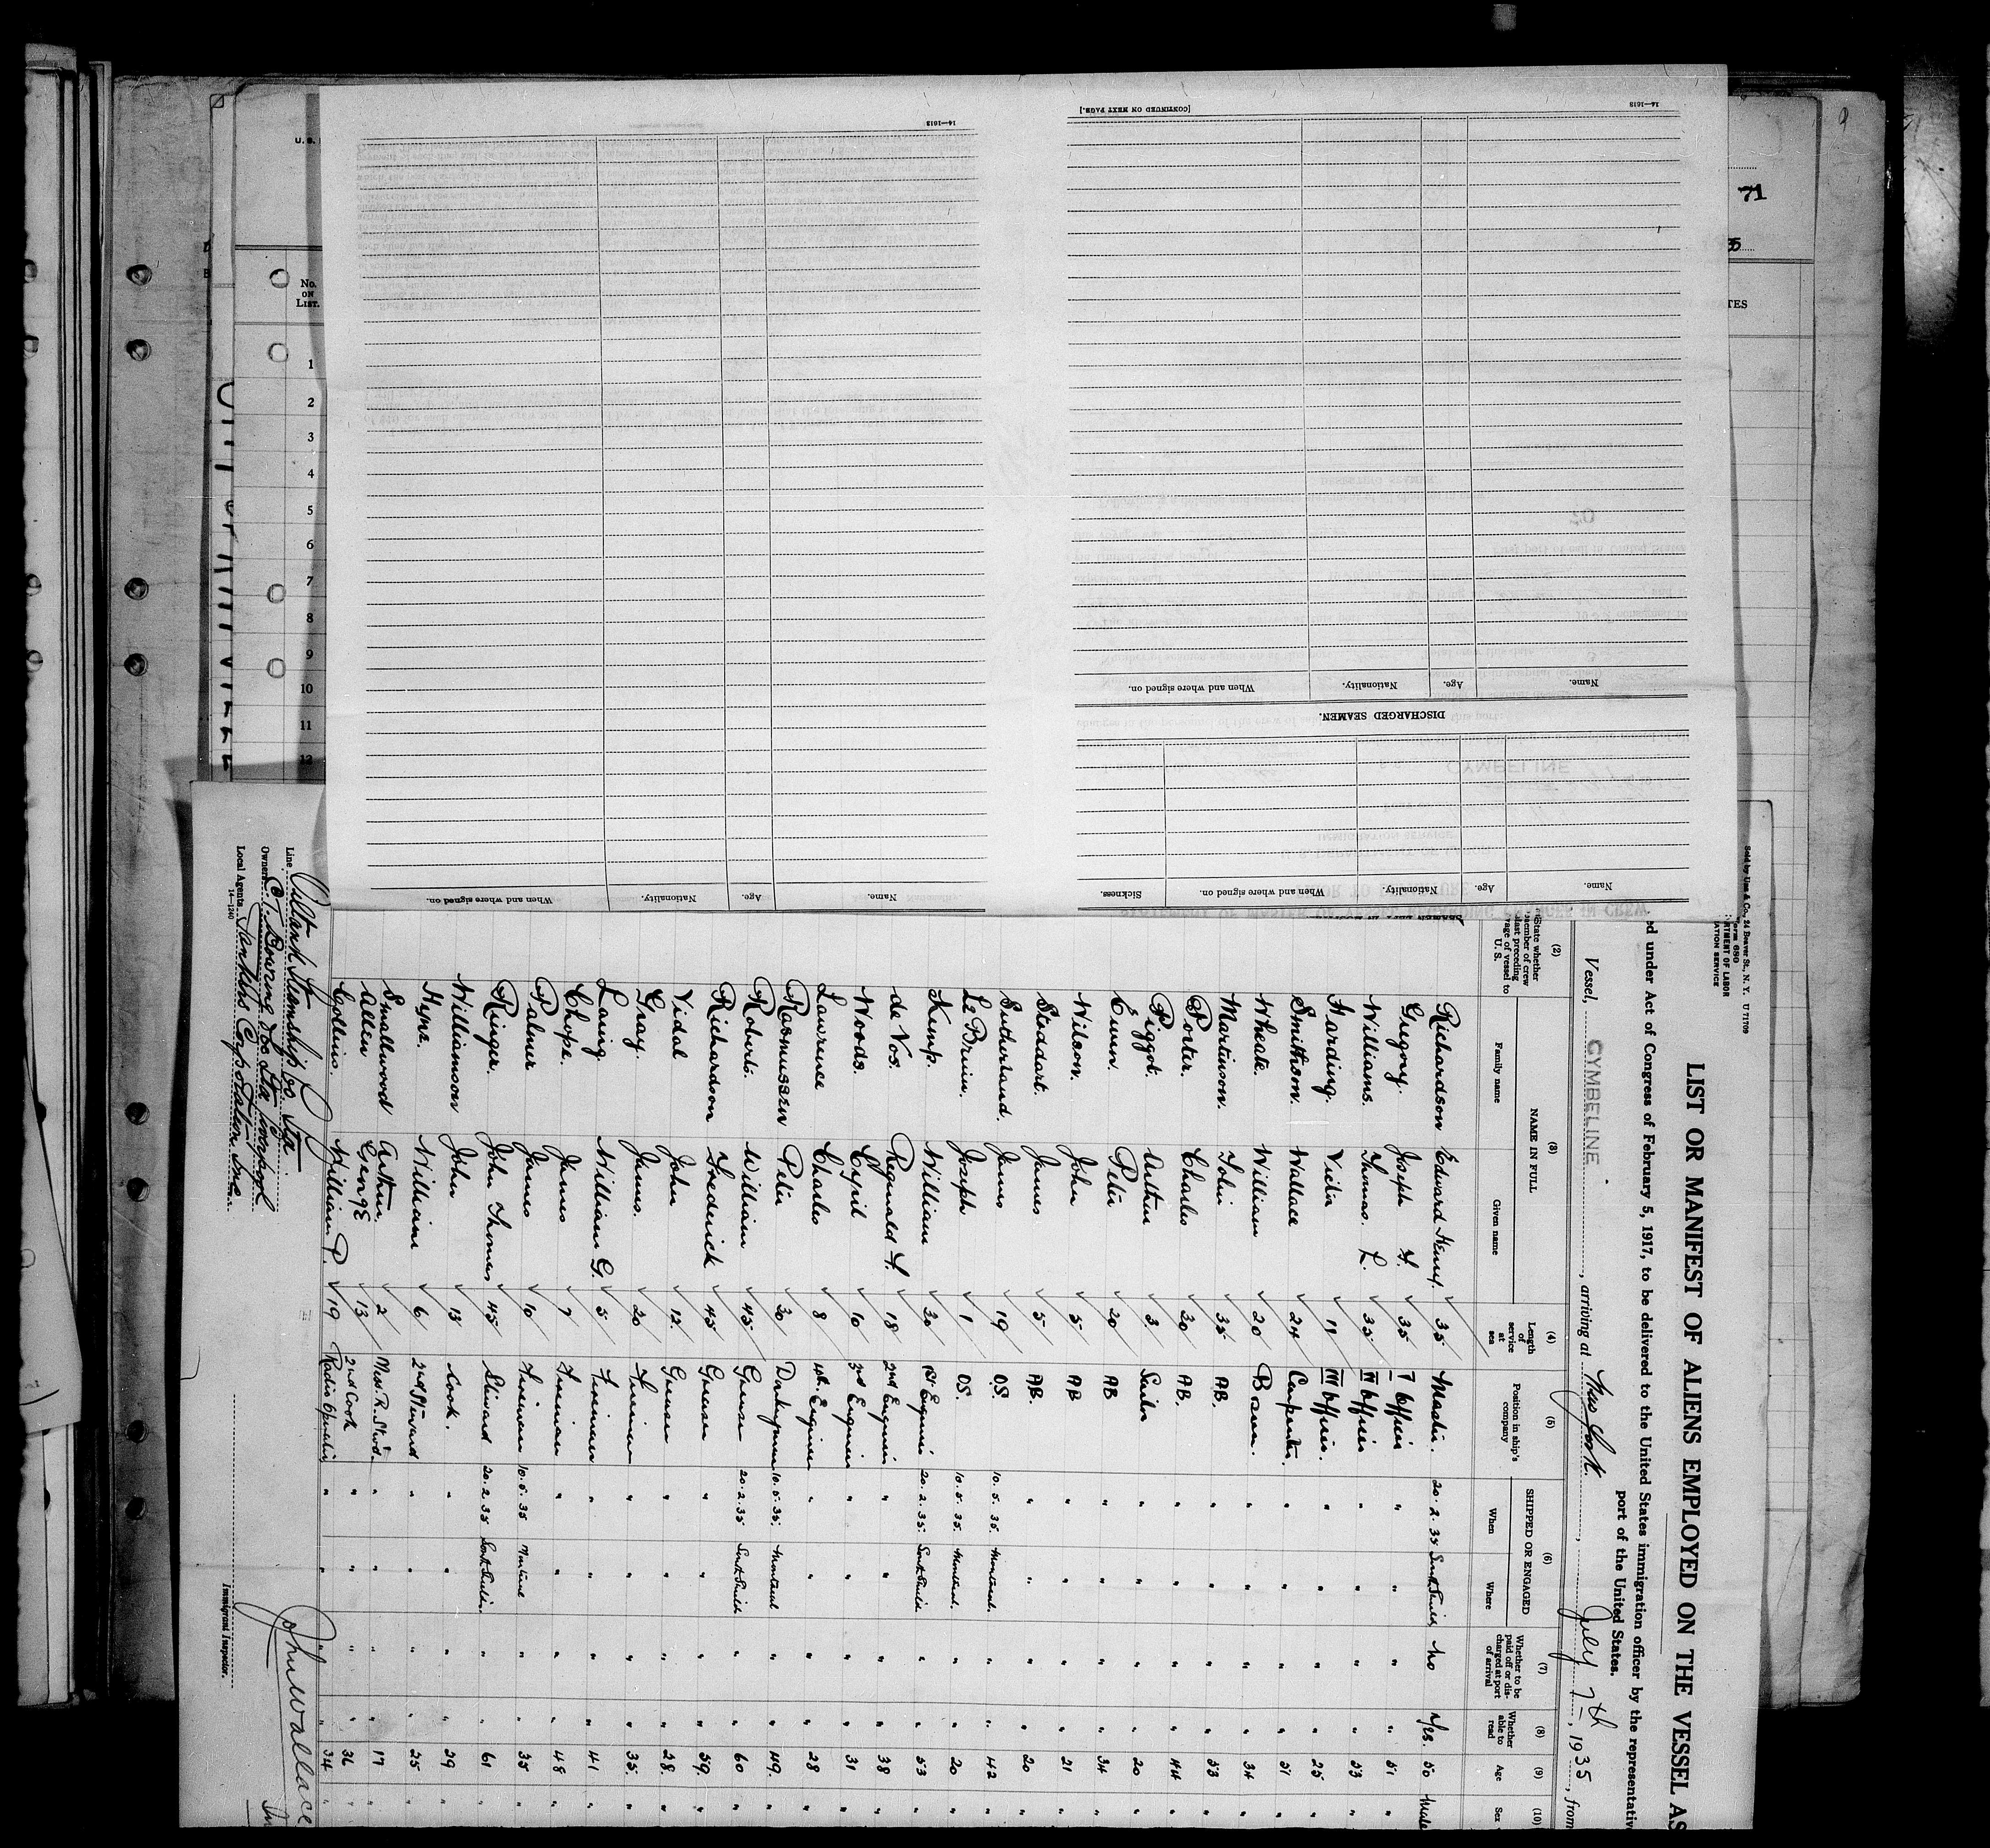 LIST OR MANIFEST OF ALIENS EMPLOYED ON THE VESSEL AS
ed under Act of Congress of February 5, 1917, to be delivered to the United States immigration officer by the representative
port of the United States.
Vessel, CYMBELINE, arriving at New York, July 7th, 1935, from
Sold by Unz & Co., 24 Beaver St., N. Y. U 71709
Form 680
TMENT OF LABOR
ATION SERVICE
(2) State whether member of crew last preceding voyage of vessel to U. S.
(3) NAME IN FULL
Family name Given name
(4) Length of service at sea
(5) Position in ship's company
(6) SHIPPED OR ENGAGED
When Where
(7) Whether to be paid off or discharged at port of arrival
(8) Whether able to read
(9) Age
(10) Sex
Richardson Edward Henry. 35 Master. 20.2.35 South Shields No Yes. 50 Male
Gregory. Joseph 35 I Officer " " " " 51 "
Williams. Thomas. L. 35 II Officer " " " " 53 "
Harding. Victor 11 III Officer. " " " " 25 "
Smithson. Wallace 24 Carpenter. " " " " 51 "
Wheate. William 20 Bosun. " " " " 34 "
Martinson. John 35 AB. " " " " 53 "
Porter. Charles 30 AB. " " " " 44 "
Piggot. Arthur 3 Sailor " " " " 20 "
Peter 20 AB " " " " 34 "
Wilson. John 5 AB " " " " 21 "
Stoddart. James 5 AB. " " " " 20 "
Sutherland. James 19 OS. 10.5.35. Montreal. " " 42 "
Le Bruin. Joseph 1 OS. 10.5.35. Montreal. " " 20 "
Kemp. William 30 1st Engineer 20.2.35. South Shields " " 53 "
de Vos. Reginald 18 2nd Engineer " " " " 38 "
Woods. Cyril 10 3rd Engineer " " " " 31 "
Lawrence Charles 8 4th. Engineer " " " " 28 "
Rasmussen Peter 30 Donkeyman 10.5.35. Montreal " " 49. "
Roberts. William 45 Greaser 20.2.35 South Shields " " 60 "
Richardson Frederick 45 Greaser " " " " 59. "
Vidal John 12. Greaser " " " " 28. "
Gray. James. 20 Fireman " " " " 35. "
Laing. William G. 5 Fireman " " " " 41 "
Chope. James 7 Fireman " " " " 48 "
Palmer James 10 Fireman 10.5.35 Montreal " " 35 "
Ringer. John Thomas 45 Steward 20.2.35 South Shields. " " 61 "
Williamson John 13 Cook. " " " " 29 "
Hyne. William 6 2nd Steward " " " " 25 "
Smallwood Arthur. 2 Mess. R. Stwd. " " " " 17 "
Allen George 13 2nd Cook " " " " 36 "
Collins. William P. 19 Radio Operator " " " " 34 "
Line Steamship Co. Ltd
Owners C. T. Bowring & Co Ltd Liverpool
Local Agents Tankers Corporation Inc.
14—1240
John Wallace
Immigrant Inspector.
[CONTINUED ON NEXT PAGE.]
14—1613
DISCHARGED SEAMEN.
Name. Age. Nationality. When and where signed on.
Name. Age. Nationality. When and where signed on. Sickness.
14—1613
Name. Age. Nationality. When and where signed on.
U. S.
No. ON LIST.
1
2
3
4
5
6
7
8
9
10
11
12
71
TES